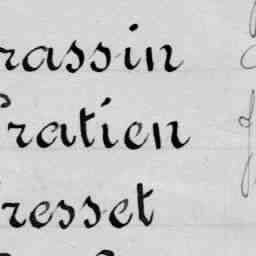 rassin
ratien
resset